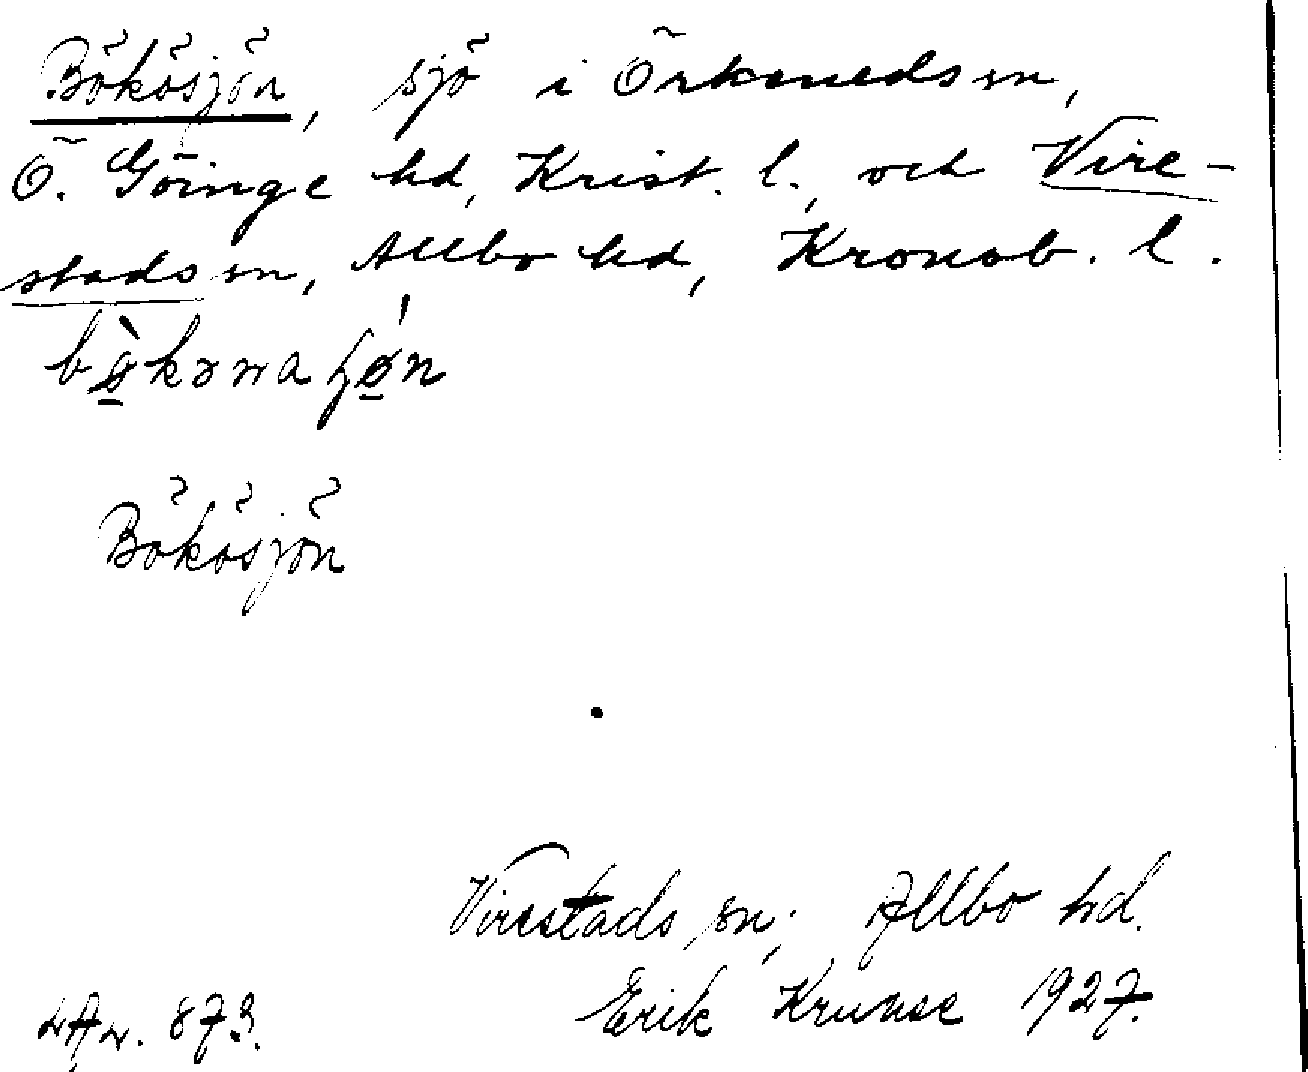 Bökösjön, sjö i Örkeneds sn,
Ö. Göinge hd, Krist. l., och Vire-
stads sn, Allbo hd, Kronob. l.
Bökösjön
Virestads sn; Allbo hd.
Erik Kruuse 1927.
873.